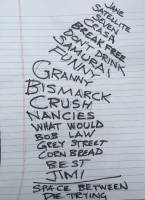 JANE
SATELLITE
SEVEN
CRASH
BREAK FREE
DON'T DRINK
SAMURAI
FUNNY
GRANNY
BISMARCK
CRUSH
NANCIES
WHAT WOULD
BOB LAW
GREY STREET
CORN BREAD
BEST
JIMI
SPACE BETWEEN
DE TRYING